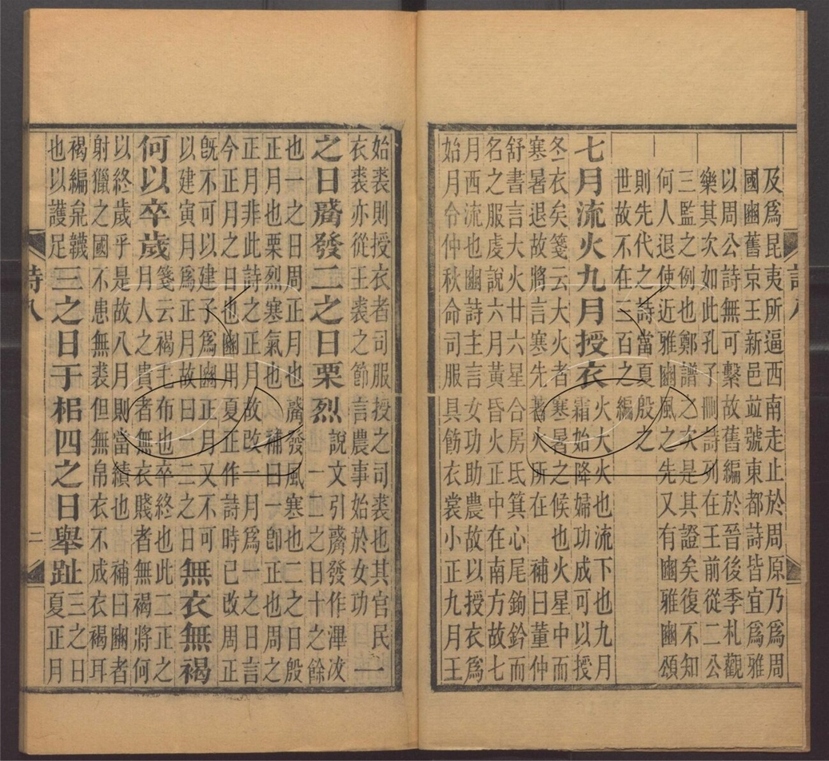 及為昆夷所逼西南走止於周原乃為周
國豳舊京王新邑竝號東都詩皆宜為雅
以周公詩無可繫故舊編於晉後季札觀
樂其次如此孔子刪詩列在王前從二公
三監之例也鄭譜之次是其證矣復不知
何人退使近雅豳風之先又有豳雅豳頌
則先代之詩當夏殷之
世故不在三百之編
七月流火九月授衣
火大火也流下也九月
霜始降婦功成可以授
冬衣矣箋云大火者寒暑之候也火星中而
寒暑退故將言寒先著火所在 補曰董仲
舒書言大火廿六星合房氐箕心尾鉤鈐而
名之服虔說六月黃昏火正中在南方故七
月西流也豳詩主言女功助農故以授衣為
始月令仲秋命司服具飭衣裳小正九月王
始裘則授衣者司服授之司裘也其官民
衣裘亦從王裘之節言農事始於女功
一
之日觱發二之日栗烈
說文引觱發作滭冹
一二之日十之餘
也一之日周正月也觱發風寒也二之日殷
正月也栗烈寒氣也 補曰一卽正也周之
正月非此詩之正月故改一月為一之日言
今正月之日也豳用夏正作詩時已改周正
旣不可以建子為豳正月又不可
以建寅月為正月故曰一二之日
無衣無褐
何以卒歲
箋云褐毛布也卒終也此二正之
月人之貴者無衣賤者無褐將何
以終歲乎是故八月則當績也 補曰豳者
射獵之國不患無裘但無帛衣不成衣褐耳
褐編枲韈
也以護足
三之日于耜四之日舉趾
三之日
夏正月
詩八
二